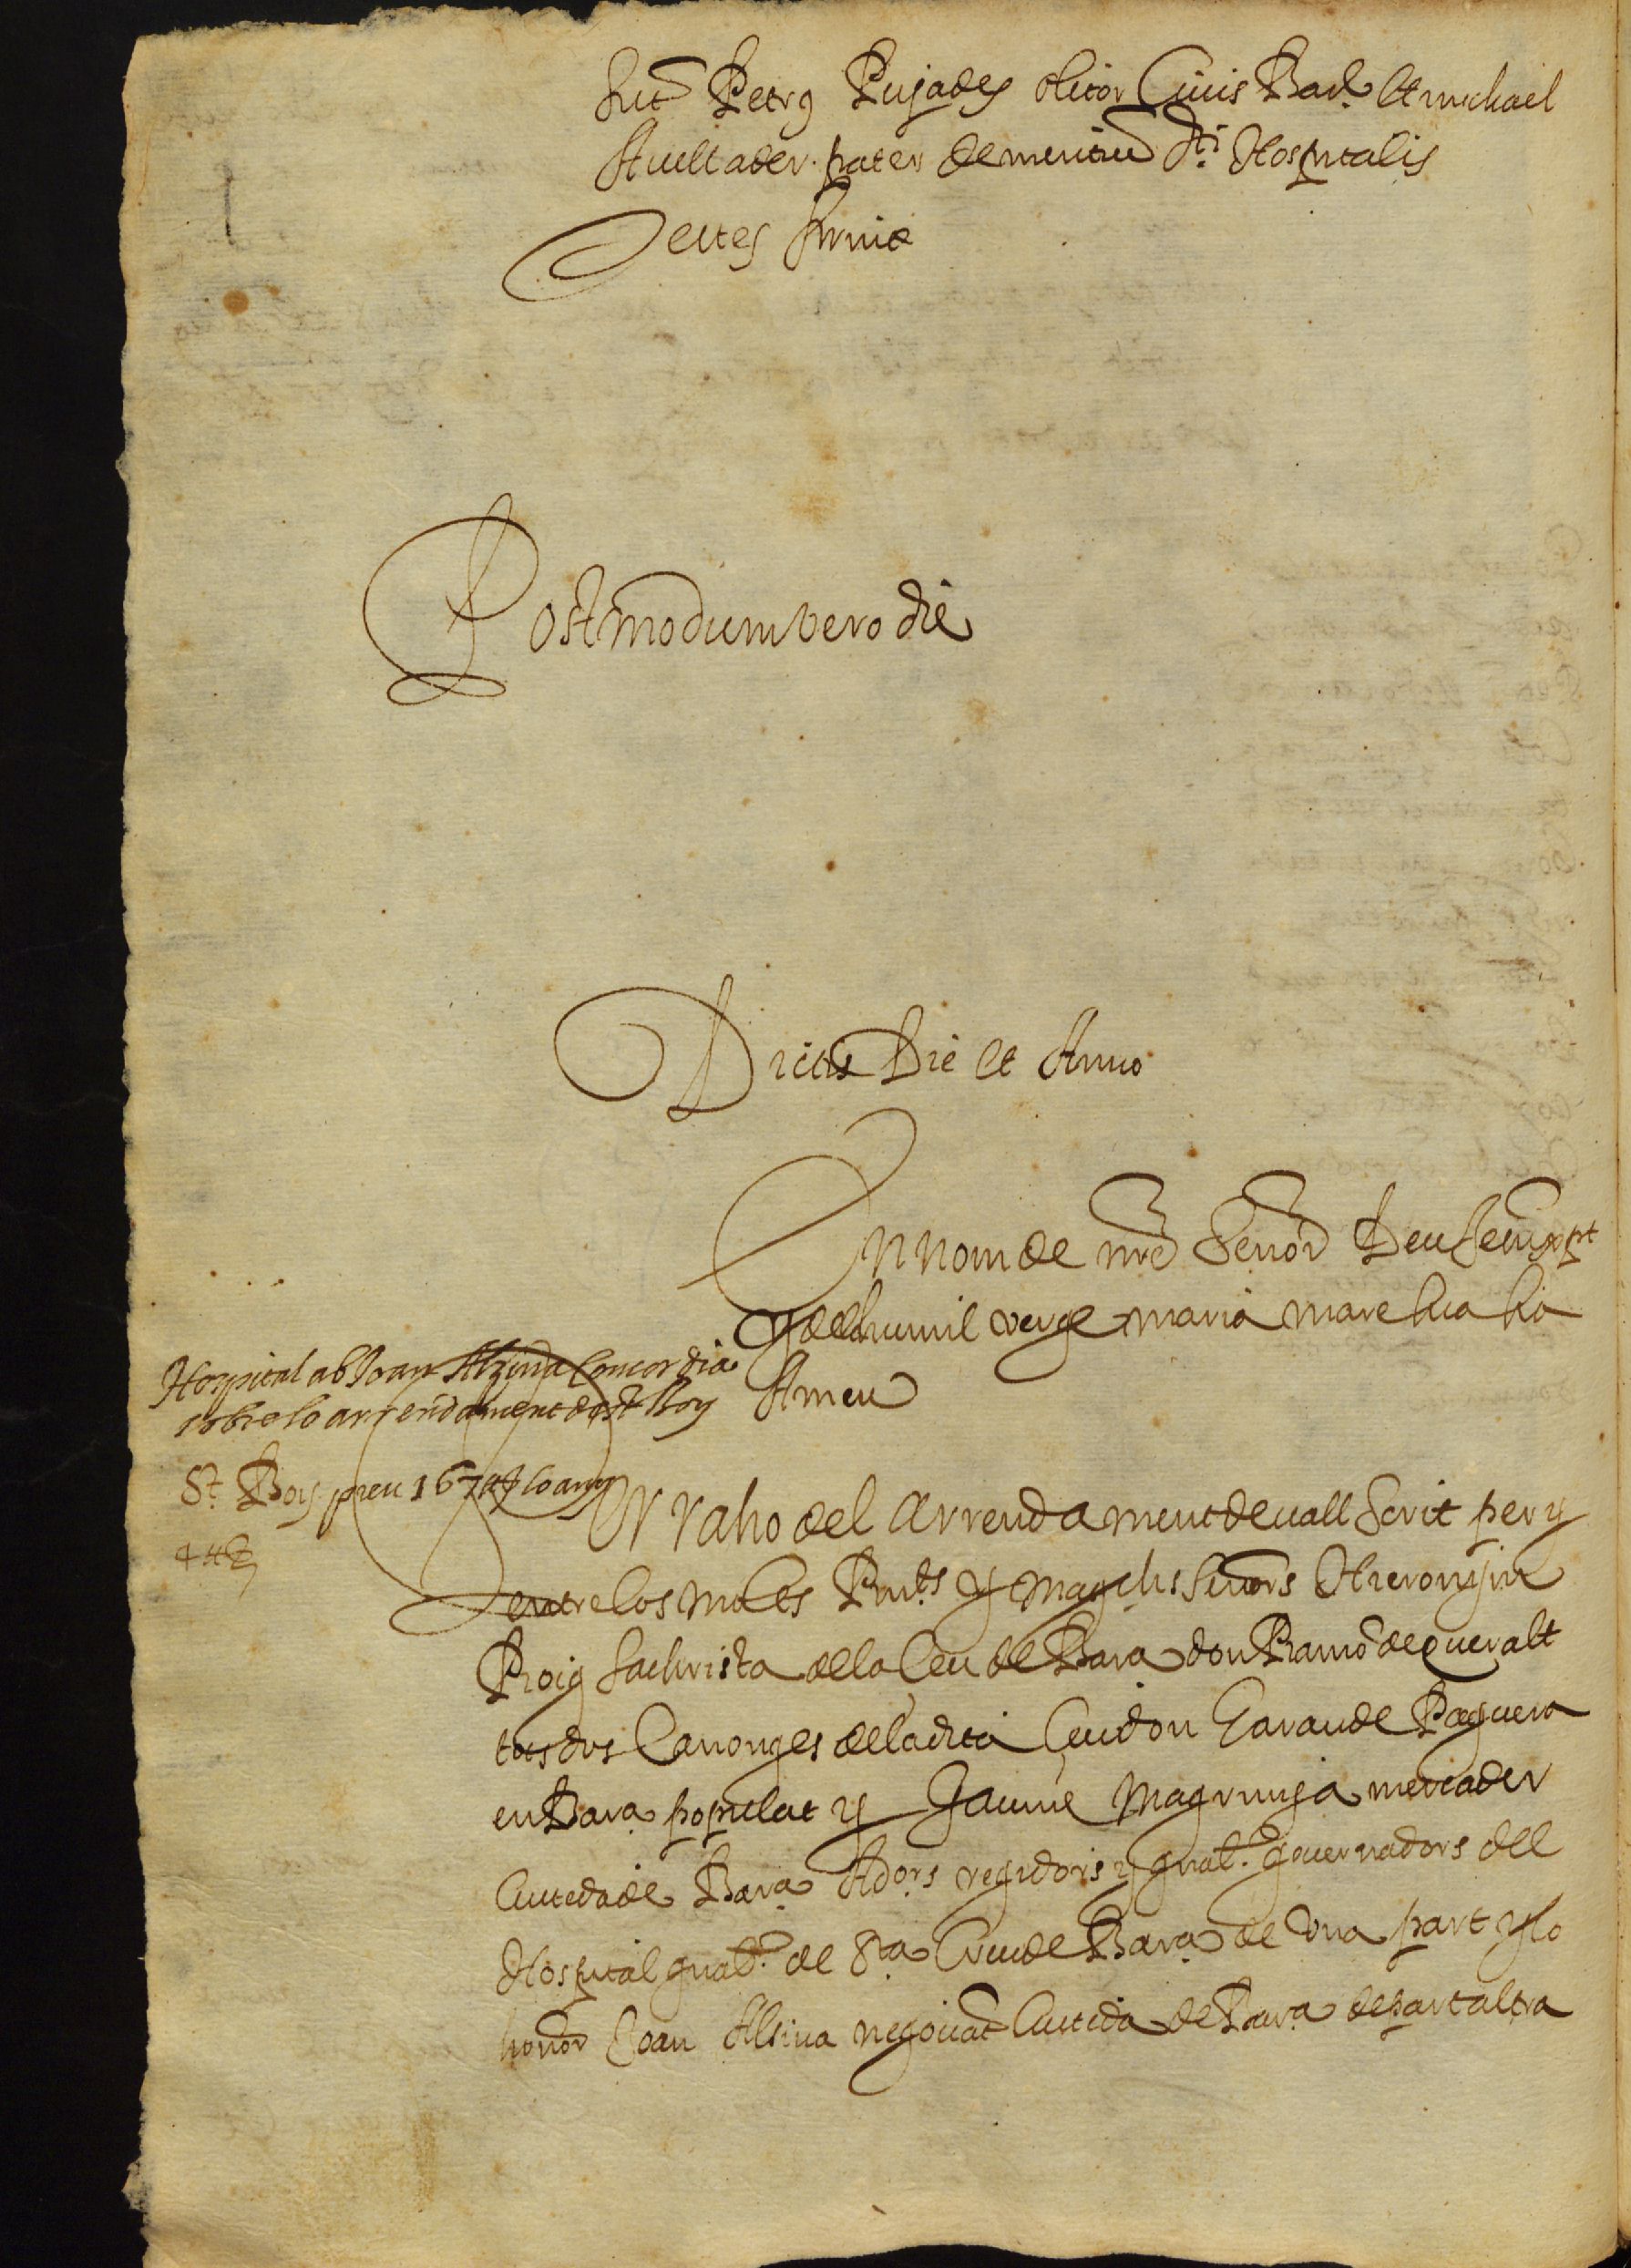 sut Petrus Pujades olitor Civis Bar. Et michael
Avellader pater dementiu dti Hospitalis
Testes firme
Postmodum vero die
Dictis Die et Anno
En nom de nre Senor Deu Jesuxpt
y dela humil verge maria mare sua sia
Amen
Hospital ab Joan Alzina Concordia
sobre lo arrendament de St Boy
St. Boy preu 167 ll lo any
Per raho del arrendament devall scrit per y
entre los molts Rnts y magchs Senors Hieronym
Roig Sachrista dela Seu de Bara don Ramo de queralt
tots dos Canonges dela dita Seu don Garau de Paguera
en Bara populat y Jaume Magrinya mercader
Ciutada de Bara Ador̃s regidors y gnal. governadors del
Hospital gnal. de Sta Creu de Bara de una part y lo
honor Joan Alsina negociat Ciutida de Bara de part altra